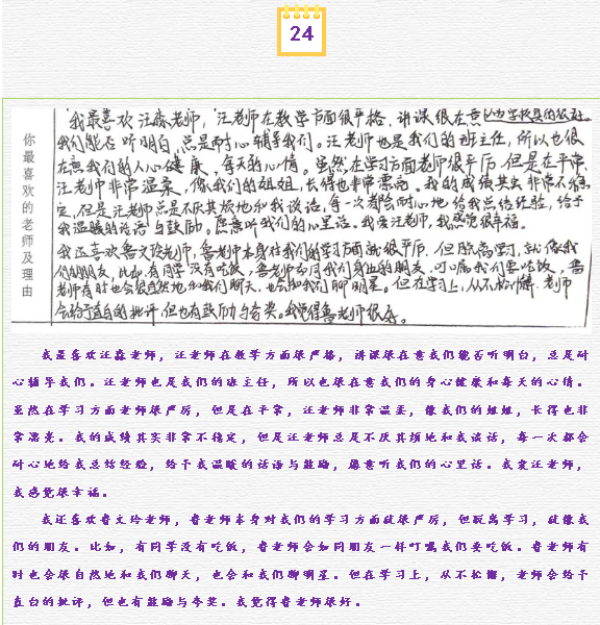 24
你最喜欢的老师及理由
我最喜欢汪淼老师，汪老师在教学方面很严格，讲课很在意
我们能否听明白，总是耐心辅导我们。汪老师也是我们的班主任，所以也很
在意我们的身心健康，每天的心情。虽然在学习方面老师很严厉，但是在平常，
汪老师非常温柔，像我们的姐姐，长得也非常漂亮。我的成绩其实非常不稳
定，但是汪老师总是不厌其烦地和我谈话，每一次都会耐心地给我总结经验，给予
我温暖的话语与鼓励。愿意听我们的心里话。我爱汪老师，我感觉很幸福。
我还喜欢鲁文玲老师，鲁老师本身对我们的学习方面就很严厉，但脱离学习，就像我
们的朋友，比如，有同学没有吃饭，鲁老师如同我们身边的朋友，叮嘱我们要吃饭，鲁
老师有时也会很自然地和我们聊天，也会和我们聊明星。但在学习上，从不松懈，老师
会给予直白的批评，但也有鼓励与夸奖。我觉得鲁老师很好。
我最喜欢汪淼老师，汪老师在教学方面很严格，讲课很在意我们能否听明白，总是耐
心辅导我们。汪老师也是我们的班主任，所以也很在意我们的身心健康和每天的心情。
虽然在学习方面老师很严厉，但是在平常，汪老师非常温柔，像我们的姐姐，长得也非
常漂亮。我的成绩其实非常不稳定，但是汪老师总是不厌其烦地和我谈话，每一次都会
耐心地给我总结经验，给予我温暖的话语与鼓励，愿意听我们的心里话。我爱汪老师，
我感觉很幸福。
我还喜欢鲁文玲老师，鲁老师本身对我们的学习方面就很严厉，但脱离学习，就像我
们的朋友。比如，有同学没有吃饭，鲁老师会如同朋友一样叮嘱我们要吃饭。鲁老师有
时也会很自然地和我们聊天，也会和我们聊明星。但在学习上，从不松懈，老师会给予
直白的批评，但也有鼓励与夸奖。我觉得鲁老师很好。